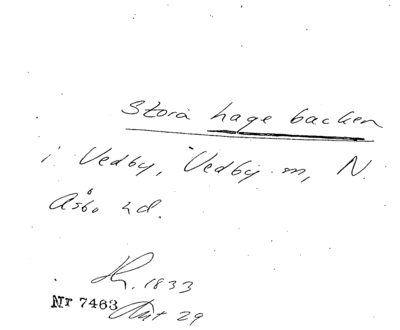 Stora hage backen
i Vedby, Vedby sn, N.
Åsbo hd.
1833
NT 7463 Akt 29